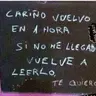 CARIÑO VUELVO
EN 1 HORA
SI NO HE LLEGADO
VUELVE A
LEERLO
TE QUIERO